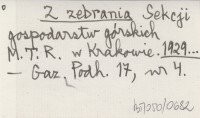 Z zebrania Sekcji
gospodarstw górskich
M.T.R. w Krakowie. 1929...
– Gaz. Podh. 17, nr 4.
b5/050/0682